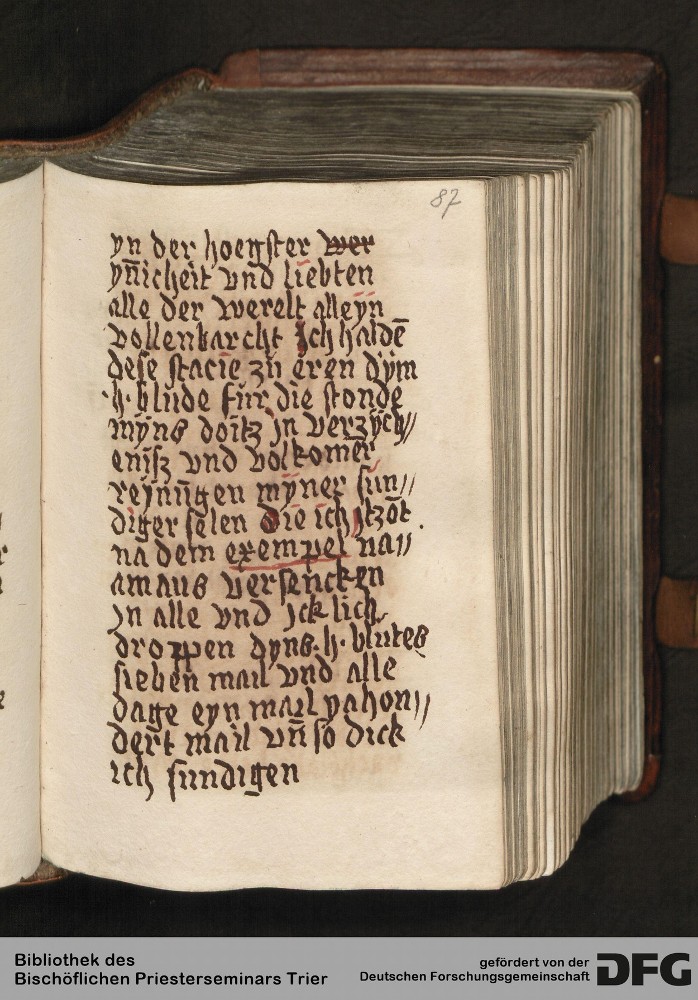 87
yn der hoegster wer
yn̄icheit vnd liebten
alle der werelt alleyn
vollenbarcht Ich haldē
dese stacie zů eren dym
·h· blude fur die stonde
myns doitz jn verzych//
enisz vnd volkomer
reynūgen myner sun//
diger selen Die ich jtzōt
na dem exempel na//
amans versencken
jn alle vnd jcklich
droppen dyns ·h· blutes
sieben mail vnd alle
dage eyn mail vahon//
dert mail vn̄ so dick
ich sundigen
Bibliothek des
Bischöflichen Priesterseminars Trier
gefördert von der
Deutschen Forschungsgemeinschaft
DFG